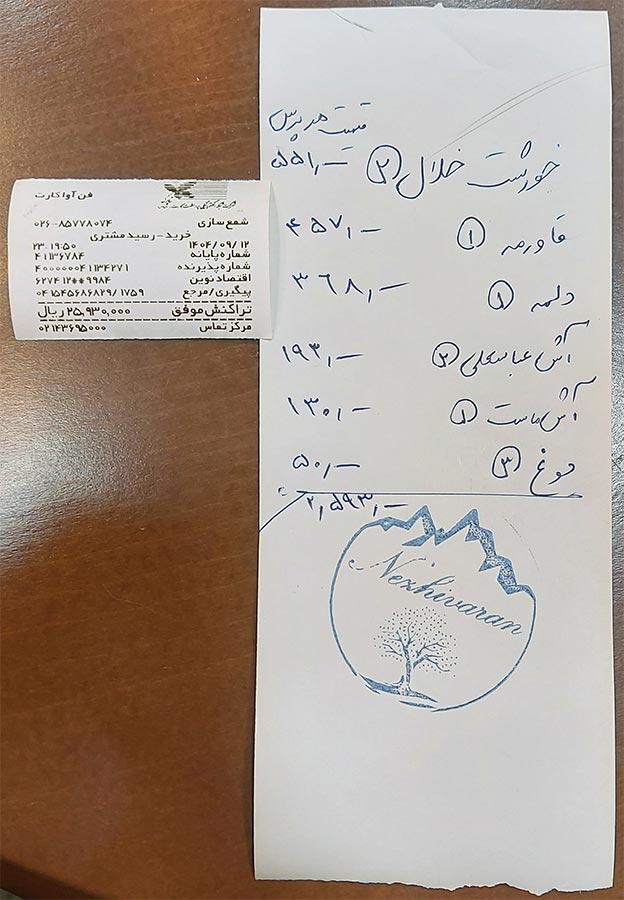 قیمت هر پرس
خورشت خلال (۲) ۵۵۱,—
قاورمه (۱) ۴۵۷,—
دلمه (۱) ۳۶۸,—
آش عباسعلی (۲) ۱۹۳,—
آش ماست (۱) ۱۳۰,—
دوغ (۳) ۵۰,—
۲,۵۹۳,—
Nezhivaran
فن آوا کارت
شمع سازی ۰۲۶-۸۵۷۷۸۰۷۴
خرید-رسید مشتری
۱۴۰۴/۰۹/۱۲ ۲۳:۱۹:۵۰
شماره پایانه ۴۱۱۳۶۷۸۴
شماره پذیرنده ۴۰۰۰۰۰۰۴۱۱۳۴۲۷۱
اقتصاد نوین ۶۲۷۴۱۲**۹۹۸۴
پیگیری/مرجع ۱۷۵۹/۰۴۱۵۴۵۶۸۶۸۲۹
تراکنش موفق ۲۵,۹۳۰,۰۰۰ ریال
مرکز تماس ۰۲۱۴۳۶۹۵۰۰۰